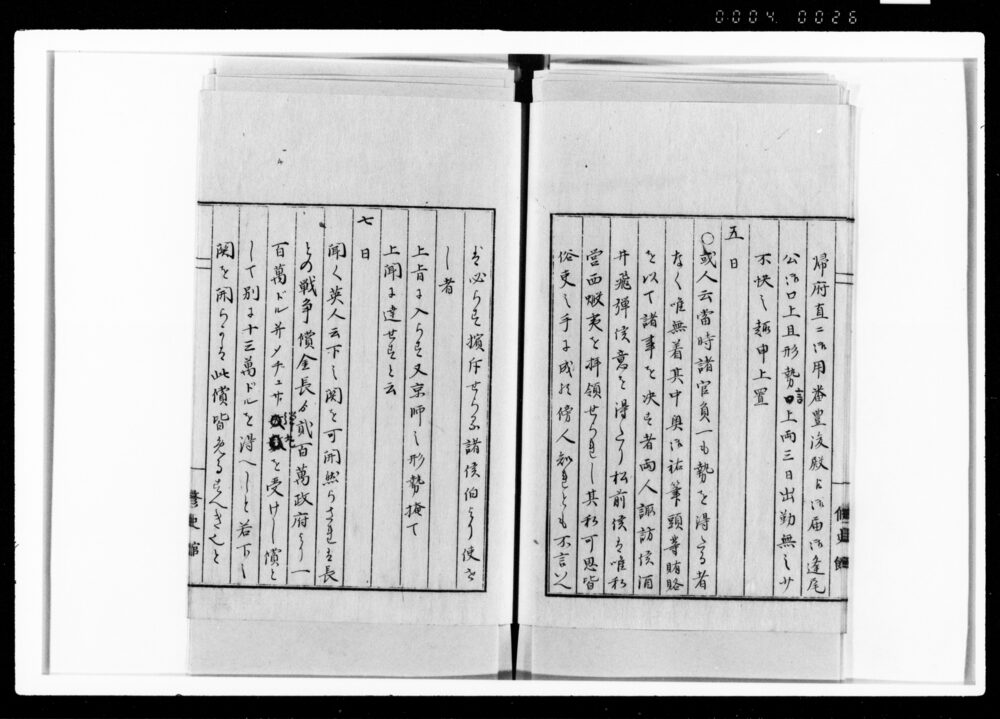 0004 0026
帰府直ニ御用番豊後殿ゟ御届御逢尾
公御口上且形勢言上両三日出勤無之少
不快之趣申上置
五日
○或人云當時諸官員一も勢を得たる者
なく唯無着其中奥御祐筆頭等賄賂
を以て諸事を決す者両人諏訪侯酒
井飛弾侯意を得たり松前侯は唯私
営西蝦夷を拝領せられし其私可悪皆
俗吏之手に成れ傍人知るとも不言
修史館
は必らす擯斥せらる諸侯伯より使せ
し者
上旨に入らす又京師之形勢掩て
上聞に達せすと云
七日
聞く英人云下之関を可開然らされは長
との戦争償金長ゟ貳百萬政府より一
百萬ドル并メチュサ
を受けし償と
して別に十三萬ドルを得へしと若下之
関を開らかは此償皆免るすへきやと
修史館